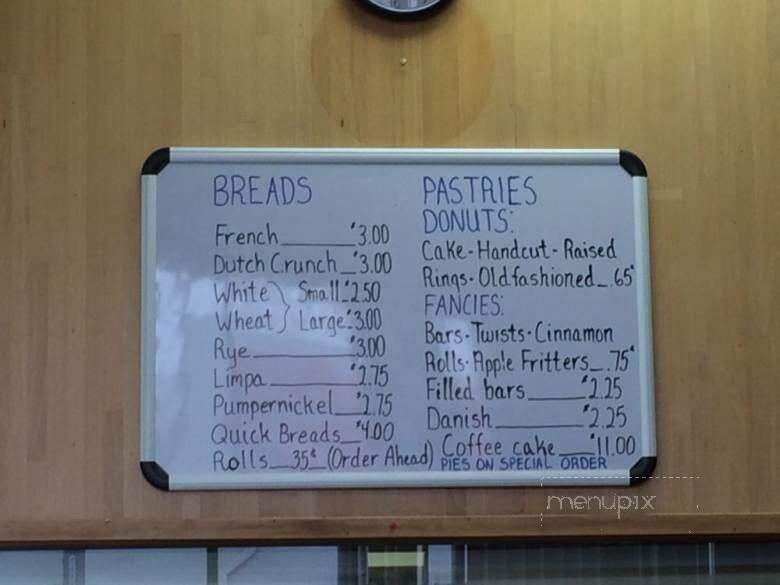 BREADS
French $3.00
Dutch Crunch $3.00
White } Small $2.50
Wheat } Large $3.00
Rye $3.00
Limpa $2.75
Pumpernickel $2.75
Quick Breads $4.00
Rolls 35¢ (Order Ahead)
PASTRIES
DONUTS:
Cake-Handcut-Raised
Rings-Oldfashioned .65¢
FANCIES:
Bars-Twists-Cinnamon
Rolls-Apple Fritters .75¢
Filled bars $2.25
Danish $2.25
Coffee cake $11.00
PIES ON SPECIAL ORDER
menupix